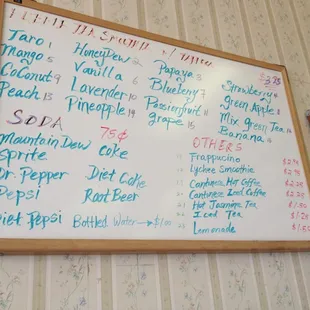 $3.25
Taro 1
Mango 5
Coconut 9
Peach 13
HoneyDew 2
Vanilla 6
Lavender 10
Pineapple 14
Papaya 3
Blueberry 7
Passionfruit 11
grape 15
Strawberry
green Apple 8
Mix green Tea
Banana
SODA 75¢
Mountain Dew
Sprite
Dr. Pepper
Pepsi
Diet Pepsi
coke
Diet Coke
Root Beer
Bottled Water → $1.00
OTHERS
Frappucino
Lychee Smoothie
Hot Coffee
Iced Coffee
Hot Jasmine Tea
Iced Tea
Lemonade